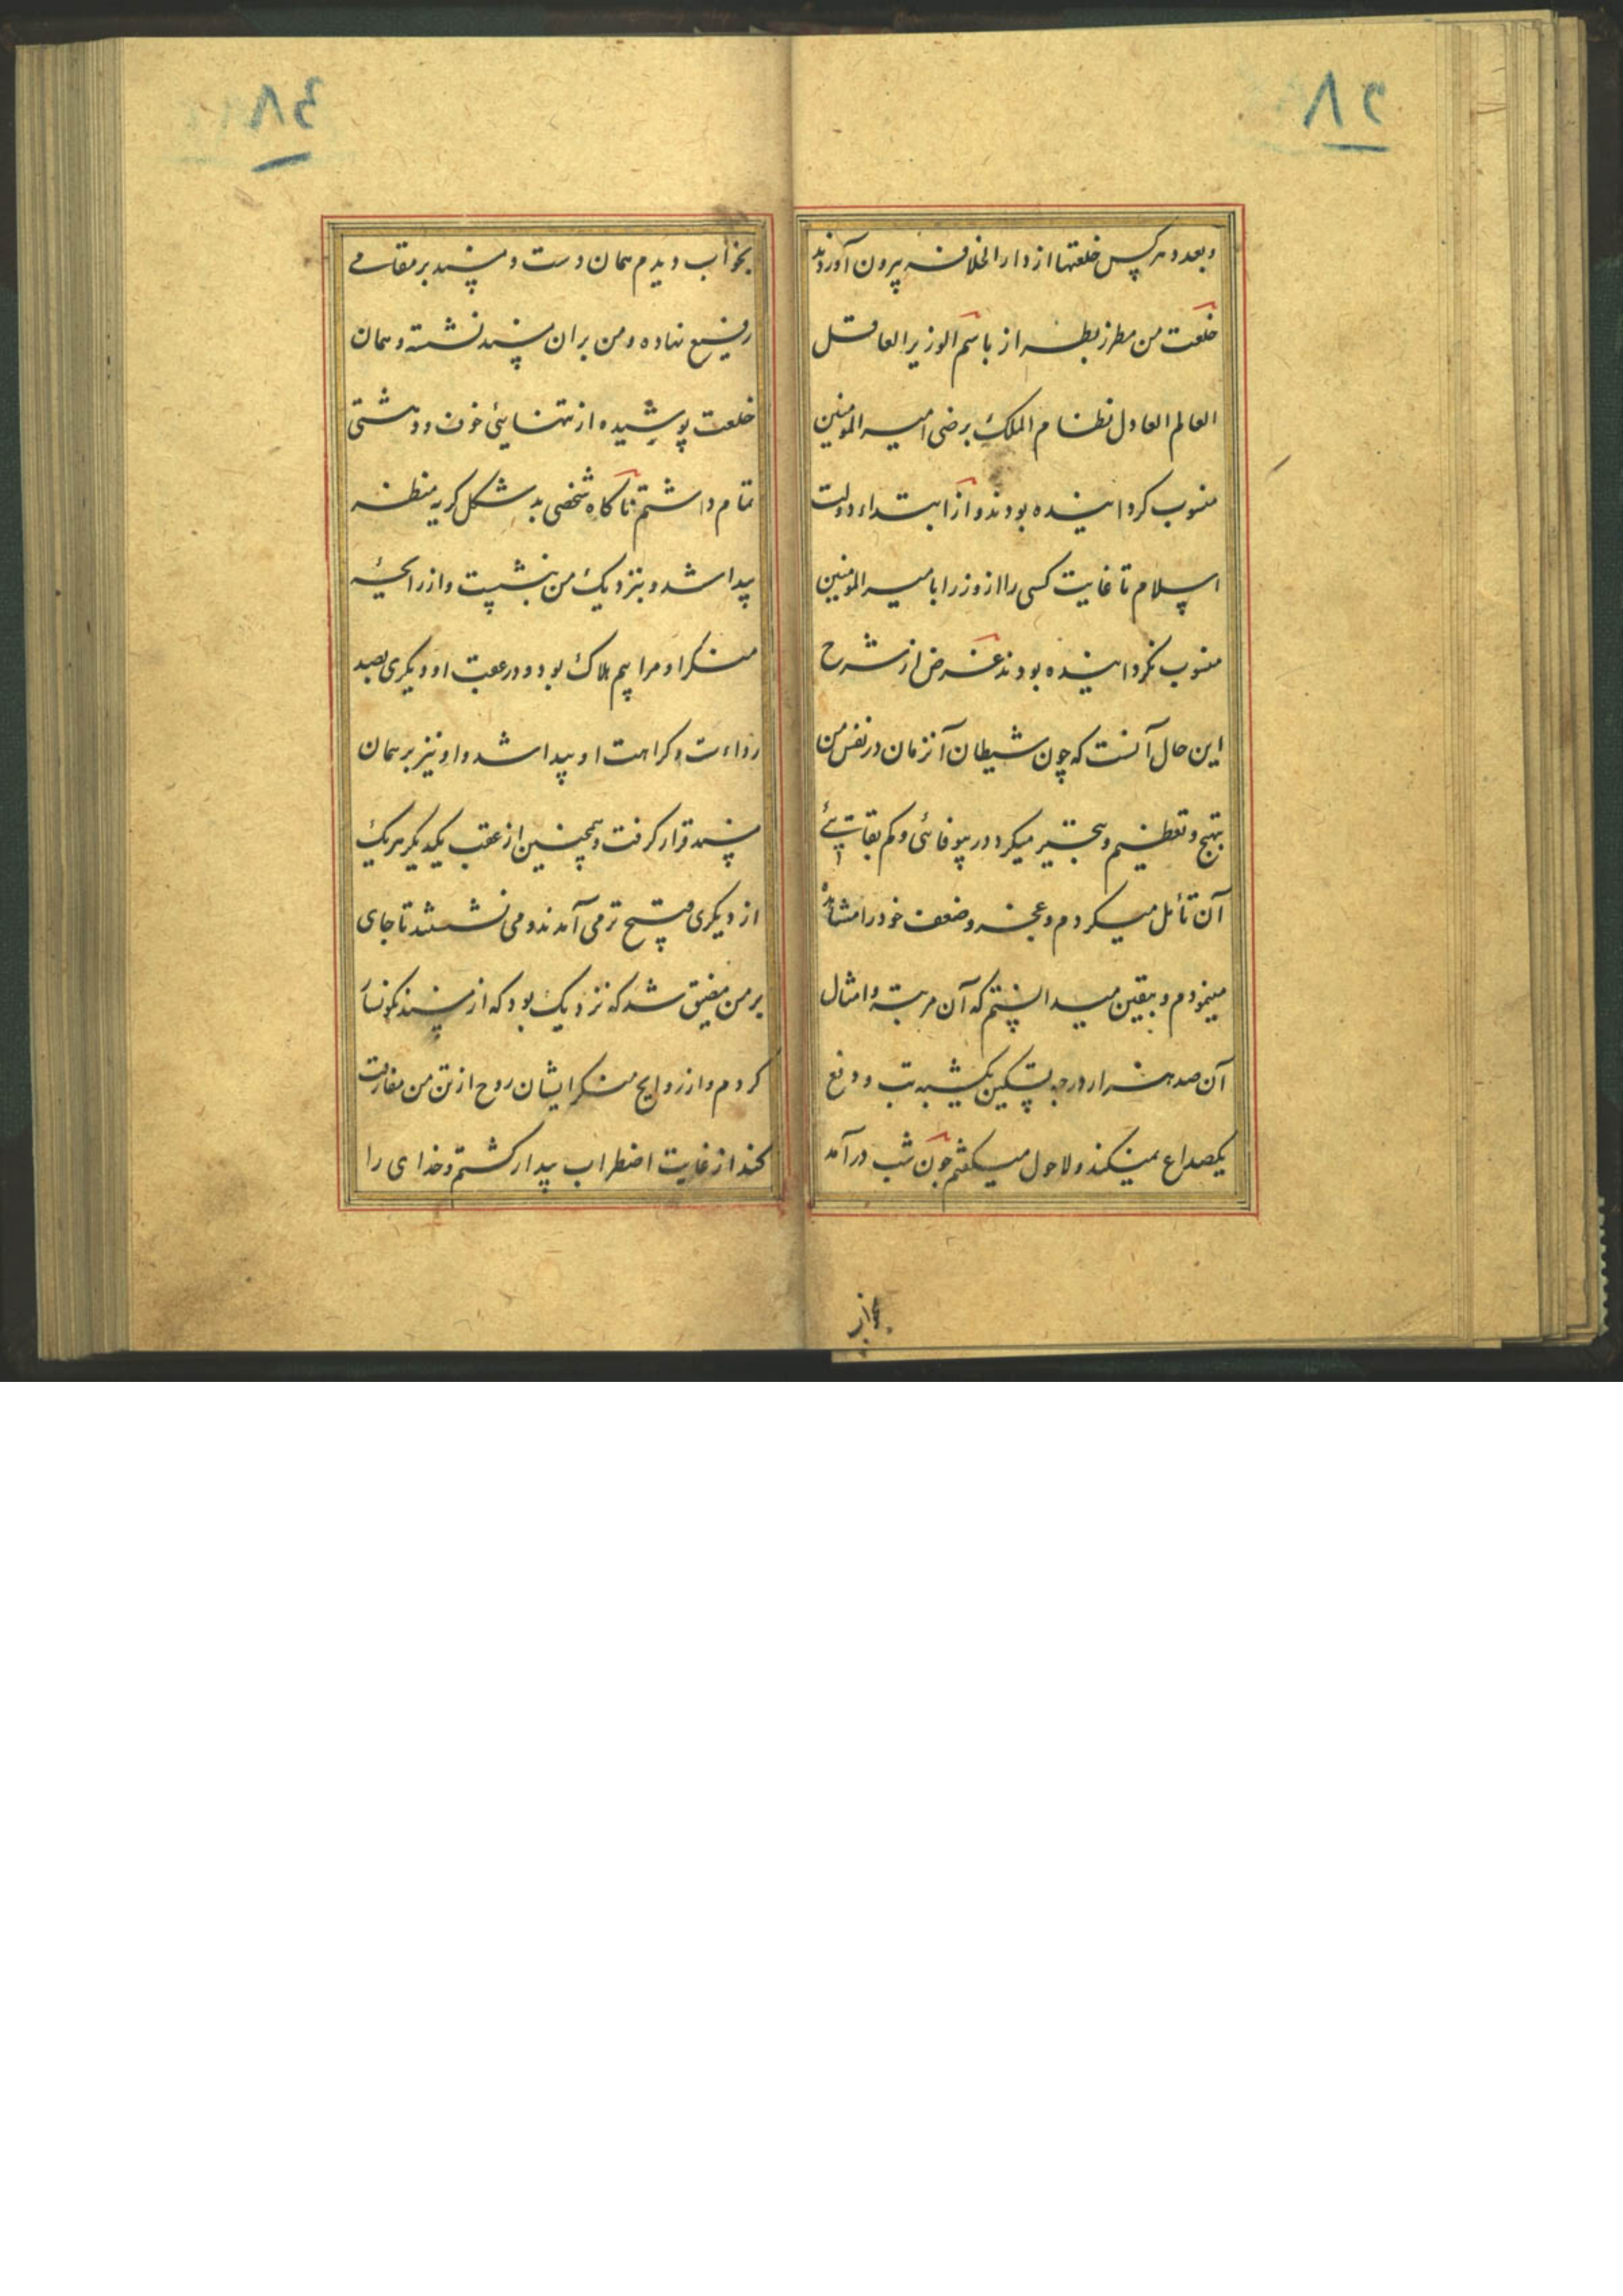 ۸۲
و بعدد هر کس خلعتها از دار الخلافه بیرون آوردند
خلعت من مطرز بطراز باسم الوزیر العاقل
العالم العادل نظام الملک رضی امیر المومنین
منسوب کردانیده بودند و از ابتداء دولت
اسلام تا غایت کسی را از وزرا بامیر المومنین
منسوب نکردانیده بودند غرض از شرح
این حال آنست که چون شیطان آنزمان در نفس من
بتهیج و تعظیم و تجبر میکرد در بیوفائی و کم بقائی
آن تأمل میکردم و عجز و ضعف خود را مشاهده
مینمودم و بیقین میدانستم که آن مرتبه و امثال
آن صد هزار درجه تسکین یکشبه تب و دفع
یکصداع نمیکند و لاحول میکفتم چون شب درآمد
بخواب
۸۳
بخواب دیدم همان دست و مسند بر مقامی
رفیع نهاده و من بران مسند نشسته و همان
خلعت پوشیده از تنهایی خوف و دهشتی
تمام داشتم ناکاه شخصی بد شکل کریه منظر
پیدا شد و بنزدیک من بنشست و از رایحهٔ
منکر او مرا بیم هلاک بود و در عقب او دیکری بصد
رداءت و کراهت او پیدا شد و او نیز بر همان
مسند قرار کرفت و همچنین از عقب یکدیکر هریک
از دیکری قبیح تر می آمدند و می نشستند تا جای
بر من مضیق شد که نزدیک بود که از مسند نکونسار
کردم و از روایح منکر ایشان روح از تن من مفارقت
کند از غایت اضطراب بیدار کشتم و خدای را